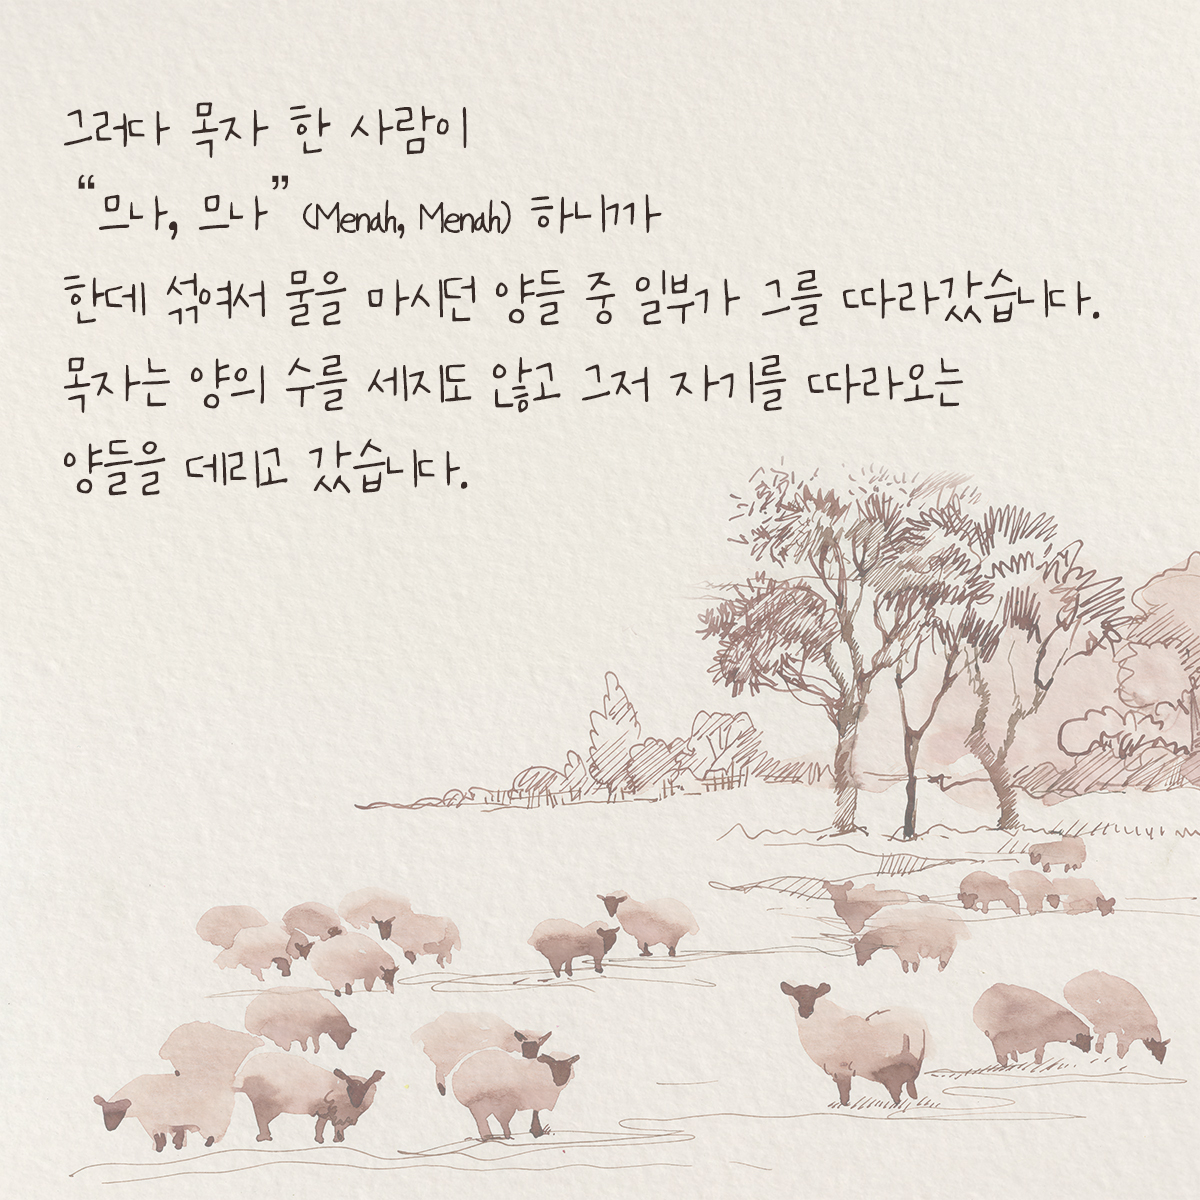 그러다 목자 한 사람이
“므나, 므나” (Menah, Menah) 하니까
한데 섞여서 물을 마시던 양들 중 일부가 그를 따라갔습니다.
목자는 양의 수를 세지도 않고 그저 자기를 따라오는
양들을 데리고 갔습니다.